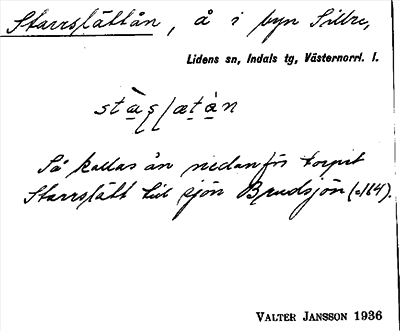 Starrslåttån, å i byn Sillre,
Lidens sn, Indals tg, Västernorrl. l.
Så kallas ån nedanför torpet
Starrslått till sjön Brudsjön (c/164).
VALTER JANSSON 1936